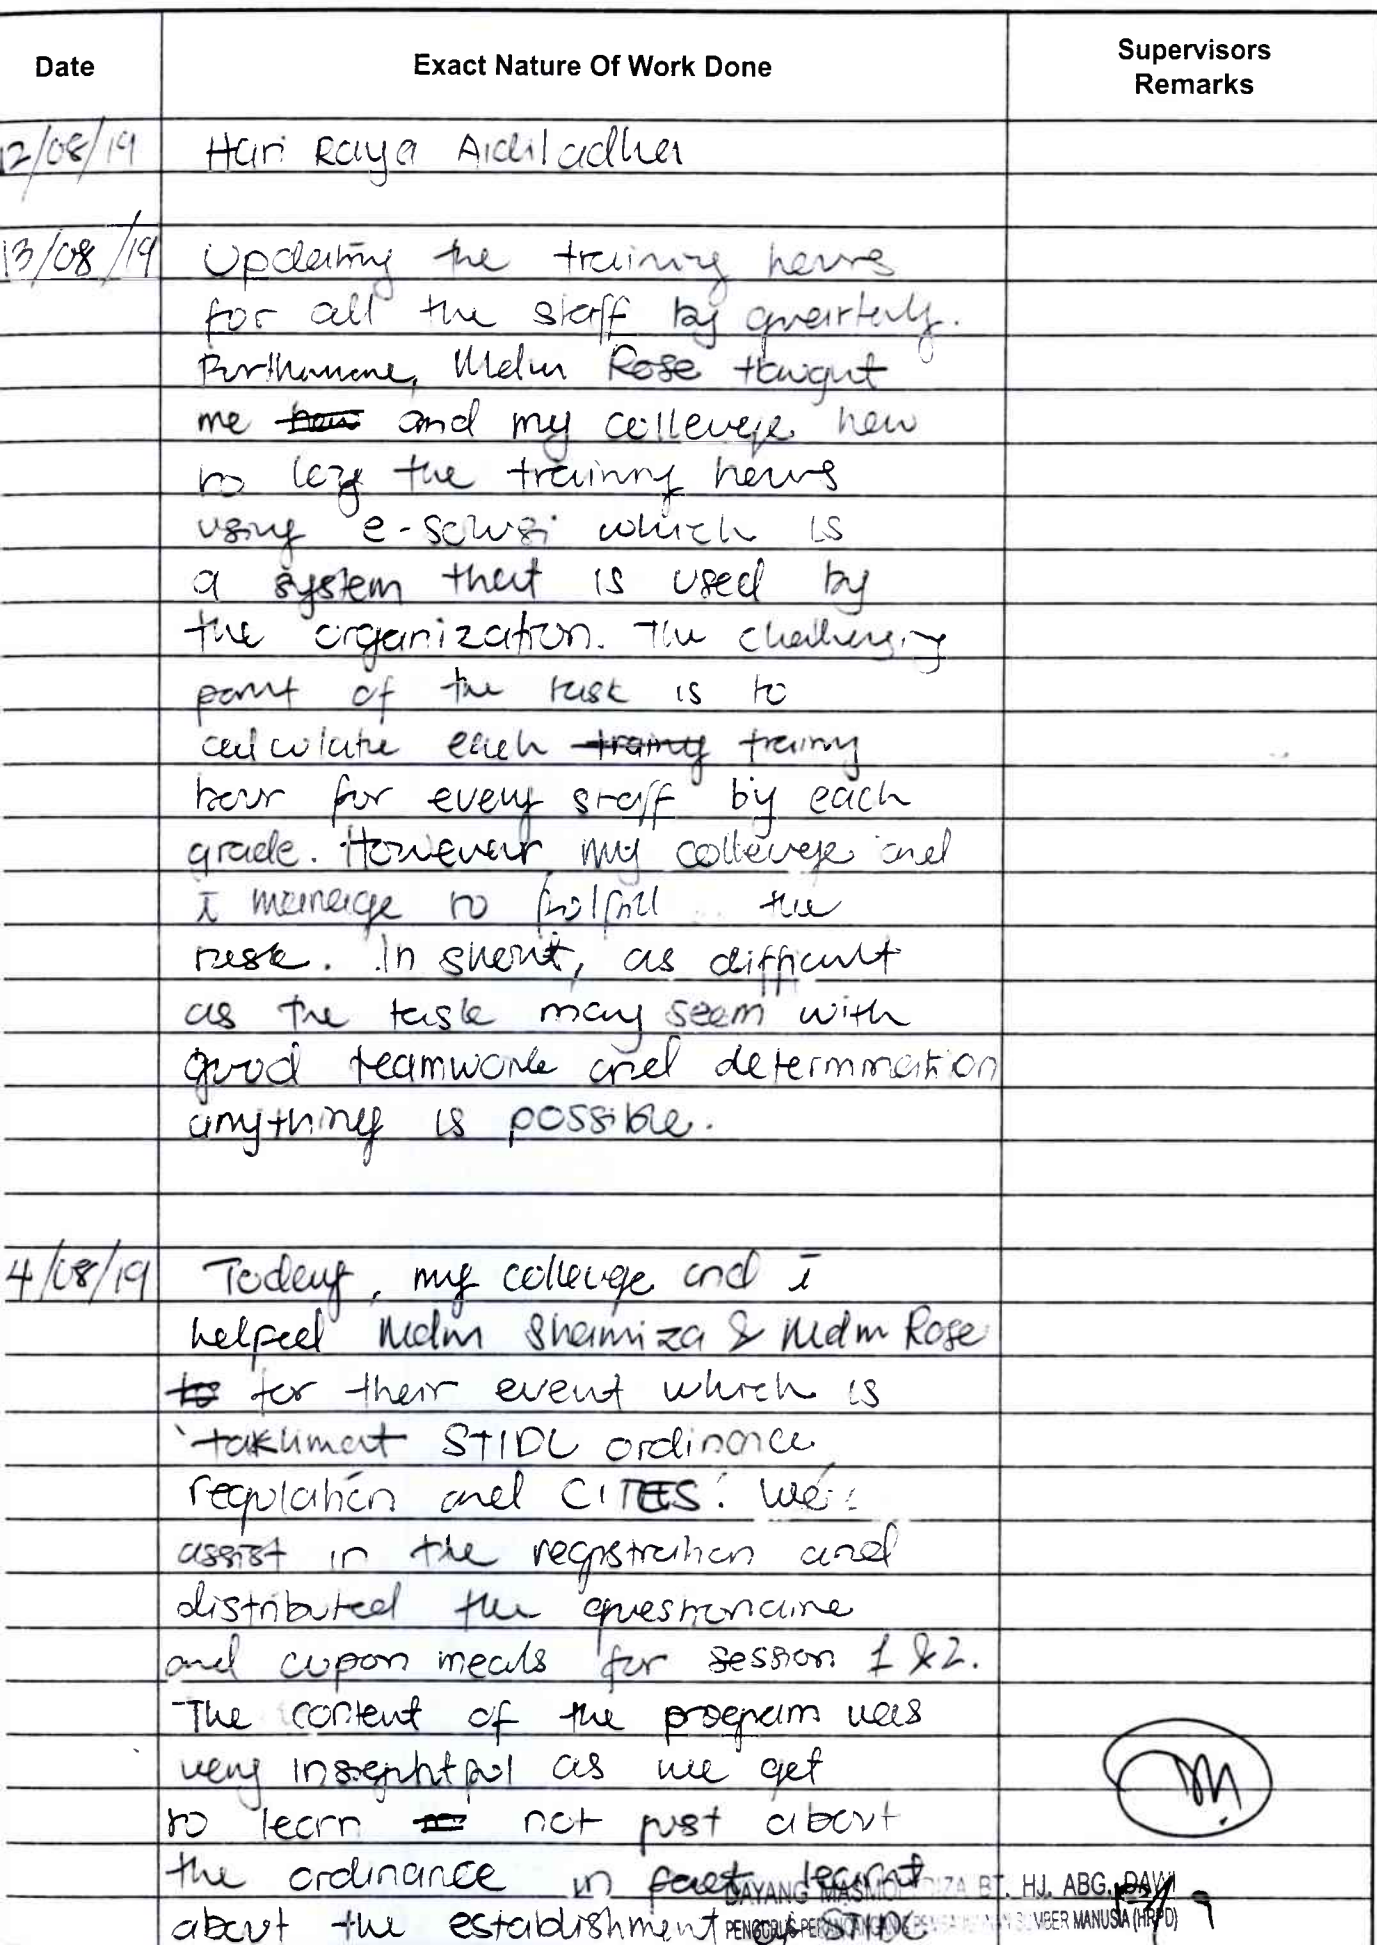 Date Exact Nature Of Work Done Supervisors Remarks
12/08/19 Hari Raya Aidiladha
13/08/19 Updating the training hours
for all the staff by quarterly.
Furthermore, Mdm Rose taught
me and my colleuge how
to key the training hours
using e-Solusi which is
a system that is used by
the organization. The challenging
part of the task is to
calculate each training
hour for every staff by each
grade. However my colleuge and
I manage to fulfill the
task. In short, as difficult
as the task may seem with
good teamwork and determination
anything is possible.
4/08/19 Today, my colleuge and I
helped Mdm Shamiza & Mdm Rose
to for their event which is
'taklimat STIDC ordinance
regulation and CITES'. We
assist in the registration and
distributed the questionaire
and cupon meals for session 1 & 2.
The content of the program was
very insightful as we get
to learn not just about
the ordinance in fact learnt
about the establishment of STIDC
DAYANG BT. HJ. ABG. DAWI
SUMBER MANUSIA (HRPD)